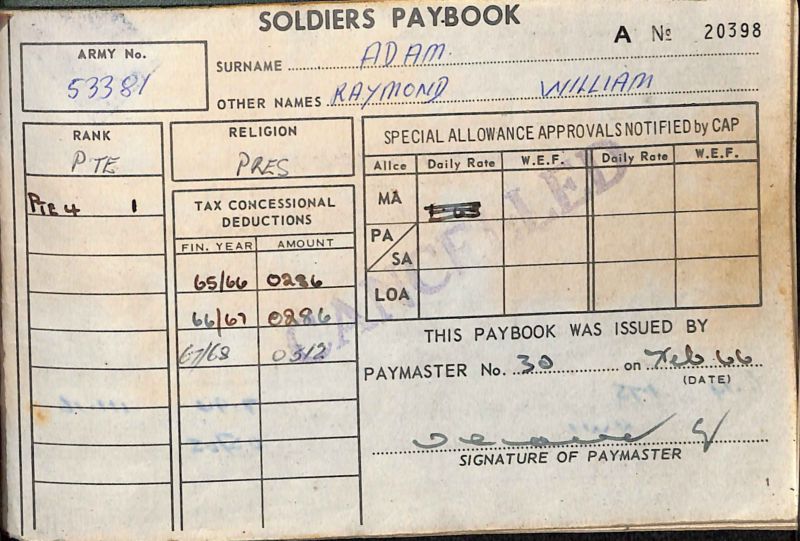 SOLDIERS PAYBOOK
A № 20398
ARMY No.
53381
SURNAME ADAM.
OTHER NAMES RAYMOND WILLIAM
RANK
PTE
PTE 4 1
RELIGION
PRES
TAX CONCESSIONAL
DEDUCTIONS
FIN. YEAR AMOUNT
65/66 0286
66/67 0286
67/68 0312
SPECIAL ALLOWANCE APPROVALS NOTIFIED by CAP
Allce Daily Rate W.E.F. Daily Rate W.E.F.
MA
PA
SA
LOA
CANCELLED
THIS PAYBOOK WAS ISSUED BY
PAYMASTER No. 30 on Feb 66
(DATE)
SIGNATURE OF PAYMASTER
1